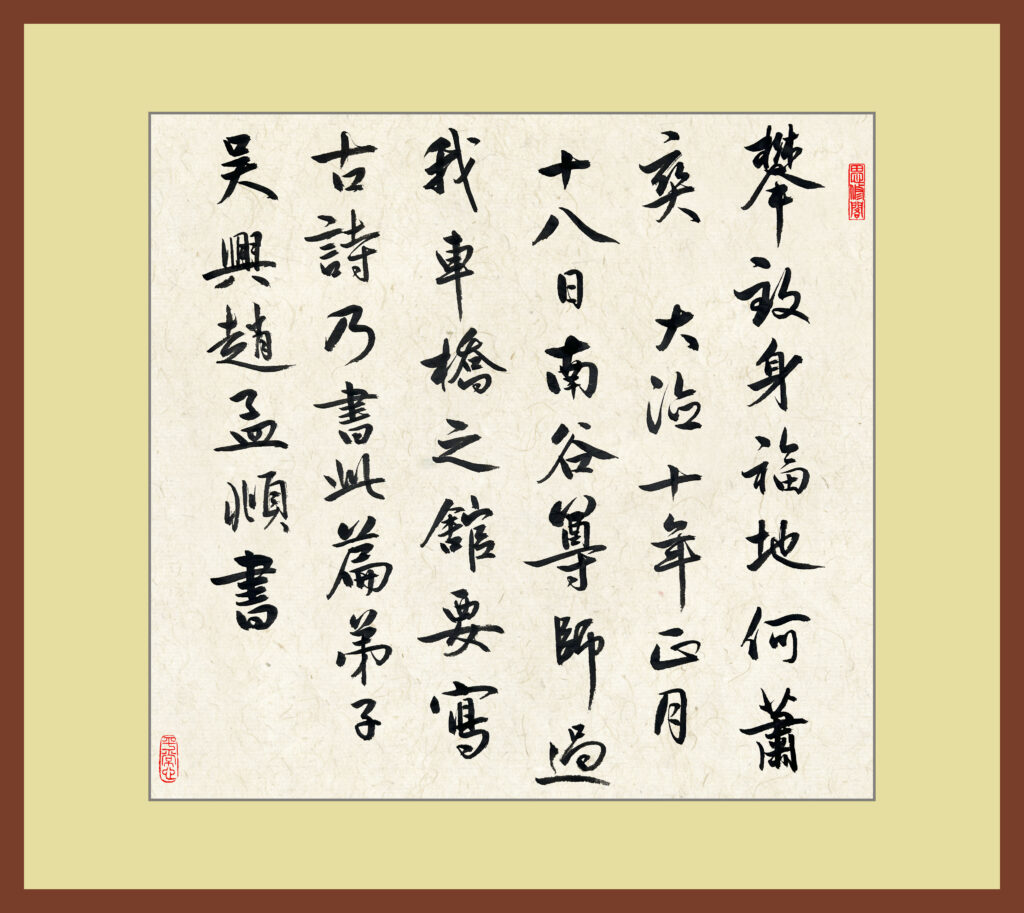 思修閣
攀致身福地何蕭
爽 大治十年正月
十八日南谷尊師過
我車橋之館要寫
古詩乃書此篇弟子
吳興趙孟頫書
平常心